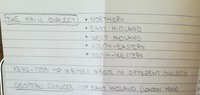 THE MAIN DIALECT
• NORTHERN
• EAST MIDLAND
• WEST MIDLAND
• SOUTH-EASTERN
• SOUTH-WESTERN
→ WRITERS WROTE IN DIFFERENT DIALECTS
→ EAST MIDLAND (LONDON